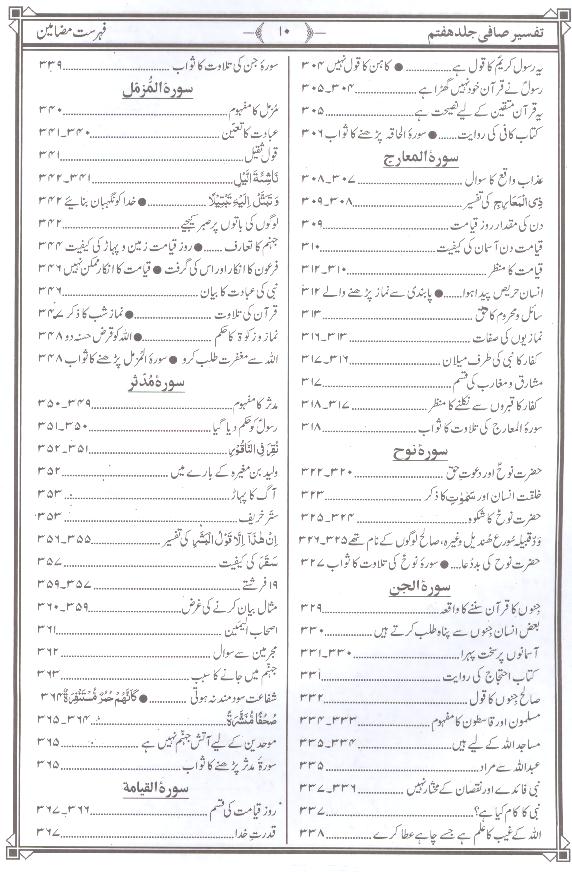 تفسیر صافی جلد ہفتم
۱۰
فہرست مضامین
یہ رسول کریم کا قول ہے ........ ● کاہن کا قول نہیں ۳۰۴
رسول نے قرآن خود نہیں گھڑا ہے ........ ۳۰۴۔۳۰۵
یہ قرآن متقین کے لیے نصیحت ہے ........ ۳۰۵
کتاب کافی کی روایت ........ ● سورۃ الحاقہ پڑھنے کا ثواب ۳۰۶
سورۃ المعارج
عذاب واقع کا سوال ........ ۳۰۷۔۳۰۸
ذِی الْمَعَارِجِ کی تفسیر ........ ۳۰۸۔۳۰۹
دن کی مقدار روز قیامت ........ ۳۰۹
قیامت دن آسمان کی کیفیت ........ ۳۱۰
قیامت کا منظر ........ ۳۱۰۔۳۱۲
انسان حریص پیدا ہوا ........ ● پابندی سے نماز پڑھنے والے ۳۱۲
سائل و محروم کا حق ........ ۳۱۳
نمازیوں کی صفات ........ ۳۱۳۔۳۱۶
کفار کا نبی کی طرف میلان ........ ۳۱۶۔۳۱۷
مشارق و مغارب کی قسم ........ ۳۱۷
کفار کا قبروں سے نکلنے کا منظر ........ ۳۱۷۔۳۱۸
سورۃ المعارج کی تلاوت کا ثواب ........ ۳۱۸
سورۃ نوح
حضرت نوح اور دعوتِ حق ........ ۳۲۰۔۳۲۲
خلقت انسان اور سمٰوٰت کا ذکر ........ ۳۲۳
حضرت نوح کا شکوہ ........ ۳۲۴۔۳۲۵
وَدّ قبیلہ سورع ھذیل وغیرہ، صالح لوگوں کے نام تھے ۳۲۵۔۳۲۶
حضرت نوح کی بددعا ........ ● سورۃ نوح کی تلاوت کا ثواب ۳۲۷
سورۃ الجن
جنوں کا قرآن سننے کا واقعہ ........ ۳۲۹
بعض انسان جنوں سے پناہ طلب کرتے ہیں ........ ۳۳۰
آسمانوں پر سخت پہرا ........ ۳۳۰۔۳۳۱
کتاب احتجاج کی روایت ........ ۳۳۱
صالح جنوں کا قول ........ ۳۳۲
مسلمون اور قاسطون کا مفہوم ........ ۳۳۳۔۳۳۴
مساجد اللہ کے لیے ہیں ........ ۳۳۴۔۳۳۵
عبد اللہ سے مراد ........ ۳۳۵
نبی فائدے اور نقصان کے مختار نہیں ........ ۳۳۶۔۳۳۷
نبی کا کام کیا ہے؟ ........ ۳۳۷
اللہ کے غیب کا علم ہے جسے چاہے عطا کرے ........ ۳۳۸
سورۃ جن کی تلاوت کا ثواب ........ ۳۳۹
سورۃ المزمل
مُزمل کا مفہوم ........ ۳۴۰
عبادت کا تعین ........ ۳۴۰۔۳۴۱
قول ثقیل ........ ۳۴۱
نَاشِئَةَ الَّیْلِ ........ ۳۴۱۔۳۴۲
وَ تَبَتَّلْ اِلَیْهِ تَبْتِیْلًا ● خدا کو نگہبان بنائیے ۳۴۲
لوگوں کی باتوں پر صبر کیجیے ........ ۳۴۲
جہنم کا تعارف ........ ● روز قیامت زمین و پہاڑ کی کیفیت ۳۴۴
فرعون کا انکار اور اس کی گرفت ● قیامت کا انکار ممکن نہیں ۳۴۶
نبی کی عبادت کا بیان ........ ۳۴۶
قرآن کی تلاوت ........ ● نماز شب کا ذکر ۳۴۷
نماز و زکوۃ کا حکم ........ ● اللہ کو قرض حسنہ دو ۳۴۸
اللہ سے مغفرت طلب کرو ● سورۃ المزمل پڑھنے کا ثواب ۳۴۸
سورۃ مُدثر
مدثر کا مفہوم ........ ۳۴۹۔۳۵۰
رسول کو حکم دیا گیا ........ ۳۵۰۔۳۵۱
نُقِرَ فِی النَّاقُوْرِ ........ ۳۵۱۔۳۵۲
ولید بن مغیرہ کے بارے میں ........ ۳۵۲
آگ کا پہاڑ ........ ۳۵۳
ستّر خریف ........ ۳۵۳
اِنْ هٰذَاۤ اِلَّا قَوْلُ الْبَشَرِ کی تفسیر ........ ۳۵۵۔۳۵۶
سَقَرَ کی کیفیت ........ ۳۵۷
۱۹ فرشتے ........ ۳۵۷۔۳۵۹
مثال بیان کرنے کی غرض ........ ۳۵۹۔۳۶۰
اصحاب الیمین ........ ۳۶۱
مجرمین سے سوال ........ ۳۶۲
جہنم میں جانے کا سبب ........ ۳۶۳
شفاعت سود مند نہ ہوتی ● كَاَنَّهُمْ حُمُرٌ مُّسْتَنْفِرَةٌ ۳۶۴
صُحُفًا مُّنَشَّرَةً ........ ۳۶۴۔۳۶۵
موحدین کے لیے آتش جہنم نہیں ہے ........ ۳۶۵
سورۃ مدثر پڑھنے کا ثواب ........ ۳۶۵
سورۃ القیامۃ
روز قیامت کی قسم ........ ۳۶۶۔۳۶۷
قدرت خدا ........ ۳۶۷